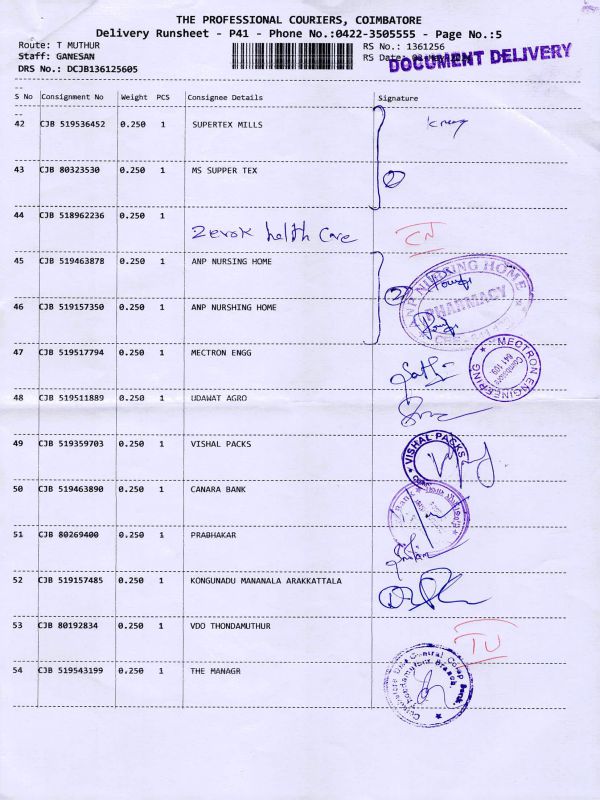 THE PROFESSIONAL COURIERS, COIMBATORE
Delivery Runsheet - P41 - Phone No.:0422-3505555 - Page No.:5
Route: T MUTHUR
RS No.: 1361256
Staff: GANESAN
RS Date:
DOCUMENT DELIVERY
DRS No.: DCJB136125605
S No Consignment No Weight PCS Consignee Details Signature
42 CJB 519536452 0.250 1 SUPERTEX MILLS
43 CJB 80323530 0.250 1 MS SUPPER TEX
2
44 CJB 518962236 0.250 1
Zerok helth care CN
45 CJB 519463878 0.250 1 ANP NURSING HOME
2
ANP NURSING HOME
PHARMACY
46 CJB 519157350 0.250 1 ANP NURSHING HOME
47 CJB 519517794 0.250 1 MECTRON ENGG
MECTRON ENGINEERING
Coimbatore
641 109.
48 CJB 519511889 0.250 1 UDAWAT AGRO
49 CJB 519359703 0.250 1 VISHAL PACKS
VISHAL PACKS
50 CJB 519463890 0.250 1 CANARA BANK
51 CJB 80269400 0.250 1 PRABHAKAR
52 CJB 519157485 0.250 1 KONGUNADU MANANALA ARAKKATTALA
53 CJB 80192834 0.250 1 VDO THONDAMUTHUR
TU
54 CJB 519543199 0.250 1 THE MANAGR
Coimbatore Dist Central Coop Bank
Thondamuthur Branch